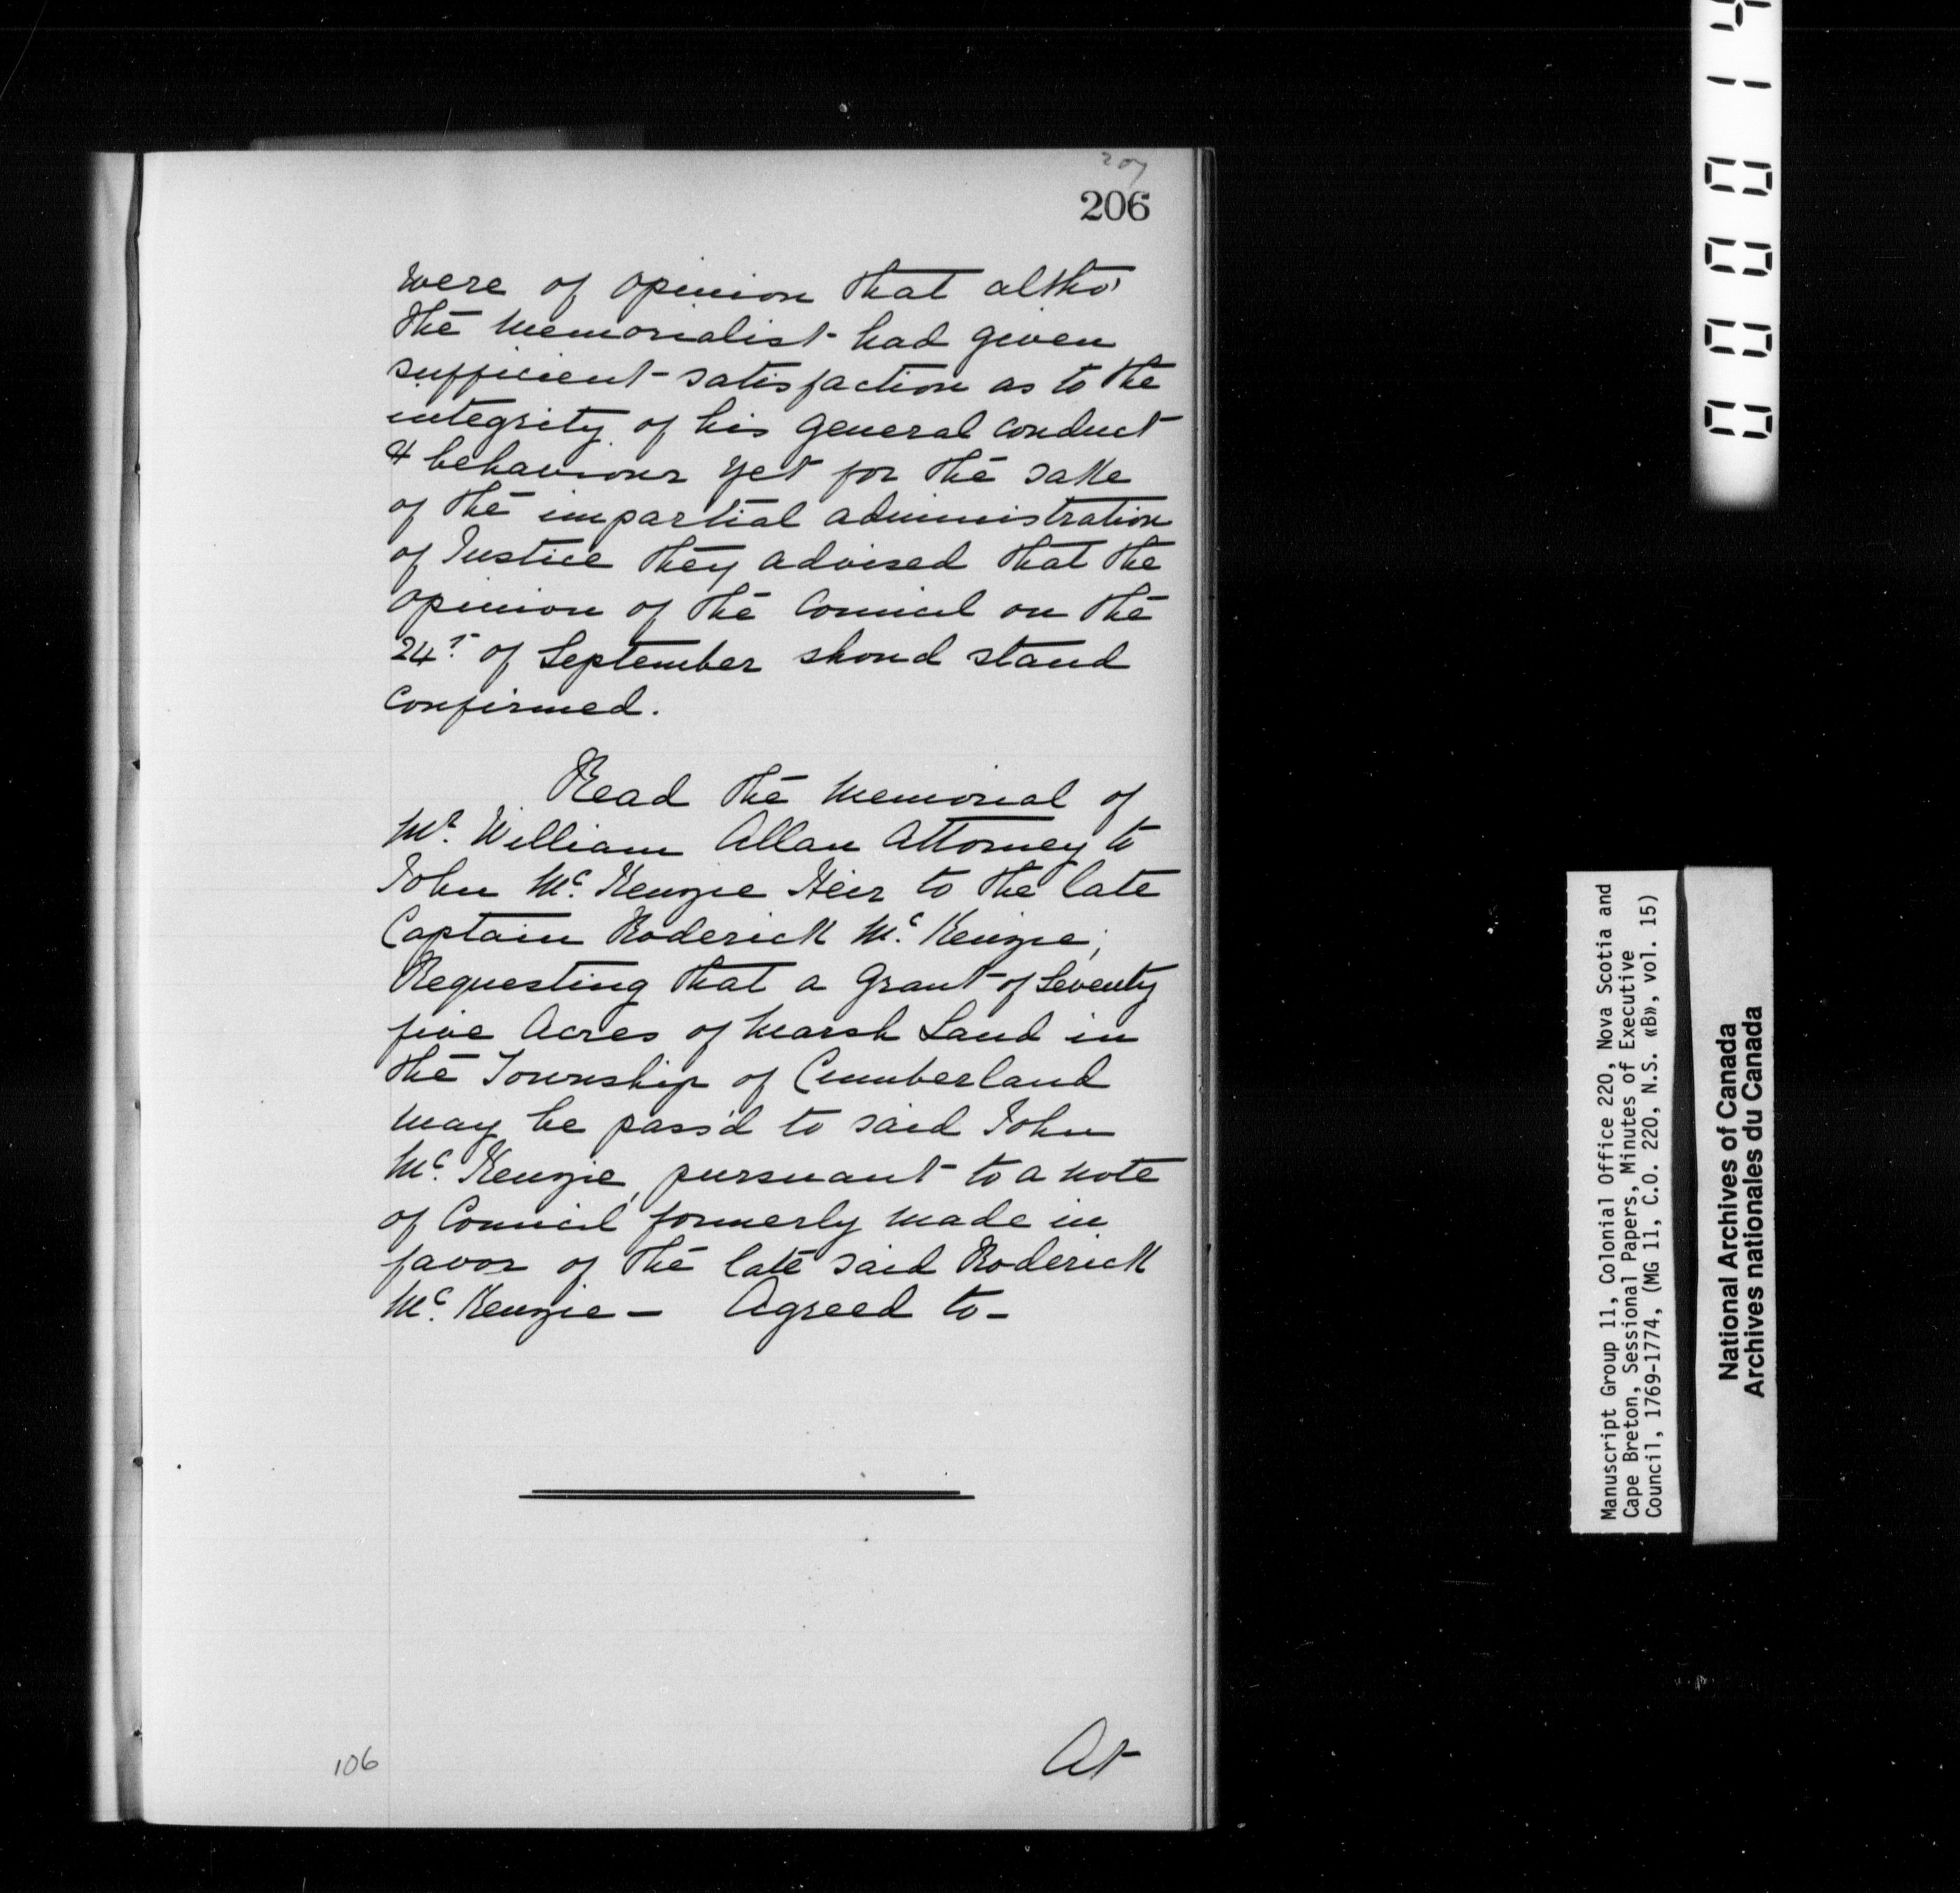 207
206
were of opinion that altho'
the Memorialist had given
sufficient satisfaction as to the
integrity of his general conduct
& behaviour yet for the sake
of the impartial administration
of Justice they advised that the
opinion of the Council on the
24t. of September shoud stand
confirmed.
Read the Memorial of
Mr. William Allan Attorney to
John Mc. Kenzie Heir to the late
Captain Roderick Mc. Kenzie;
Requesting that a Grant of Seventy
five Acres of Marsh Land in
the Township of Cumberland
may be pass'd to said John
Mc. Kenzie, pursuant to a note
of Council formerly made in
favor of the late said Roderick
Mc. Kenzie – Agreed to –
106
At
Manuscript Group 11, Colonial Office 220, Nova Scotia and
Cape Breton, Sessional Papers, Minutes of Executive
Council, 1769-1774, (MG 11, C.O. 220, N.S. «B», vol. 15)
National Archives of Canada
Archives nationales du Canada